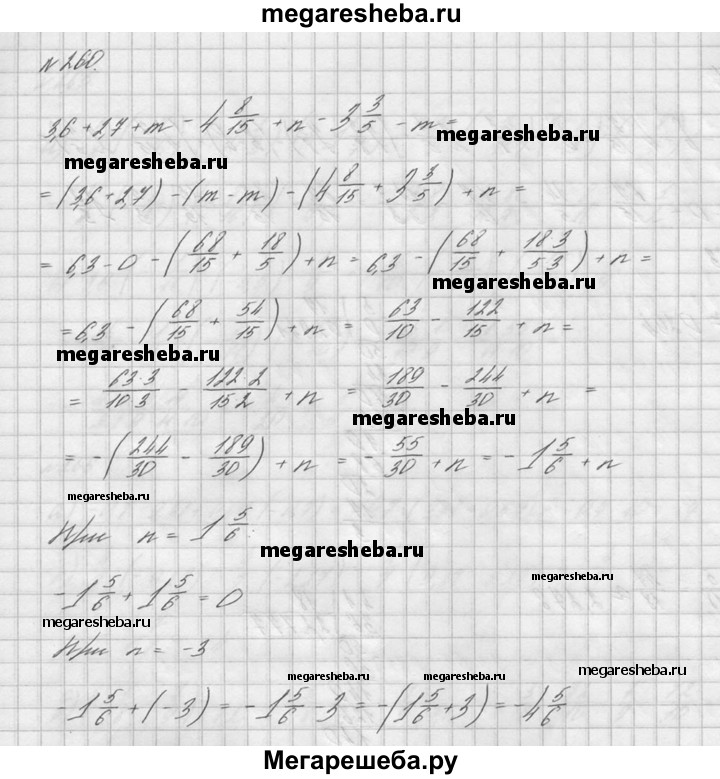 megaresheba.ru
N 260.
megaresheba.ru
3,6 + 2,7 + m - 4 8/15 + n - 3 3/5 - m =
megaresheba.ru
megaresheba.ru
= (3,6 + 2,7) - (m - m) - (4 8/15 + 3 3/5) + n =
= 6,3 - 0 - (68/15 + 18/5) + n = 6,3 - (68/15 + 18 3/5 3) + n =
megaresheba.ru
= 6,3 - (68/15 + 54/15) + n = 63/10 - 122/15 + n =
megaresheba.ru
= 63 3/10 3 - 122 2/15 2 + n = 189/30 - 244/30 + n =
megaresheba.ru
= - (244/30 - 189/30) + n = - 55/30 + n = - 1 5/6 + n
megaresheba.ru
При n = 1 5/6:
megaresheba.ru
- 1 5/6 + 1 5/6 = 0
megaresheba.ru
megaresheba.ru
При n = -3
megaresheba.ru
megaresheba.ru
megaresheba.ru
- 1 5/6 + (-3) = - 1 5/6 - 3 = - (1 5/6 + 3) = - 4 5/6
Мегарешеба.ру